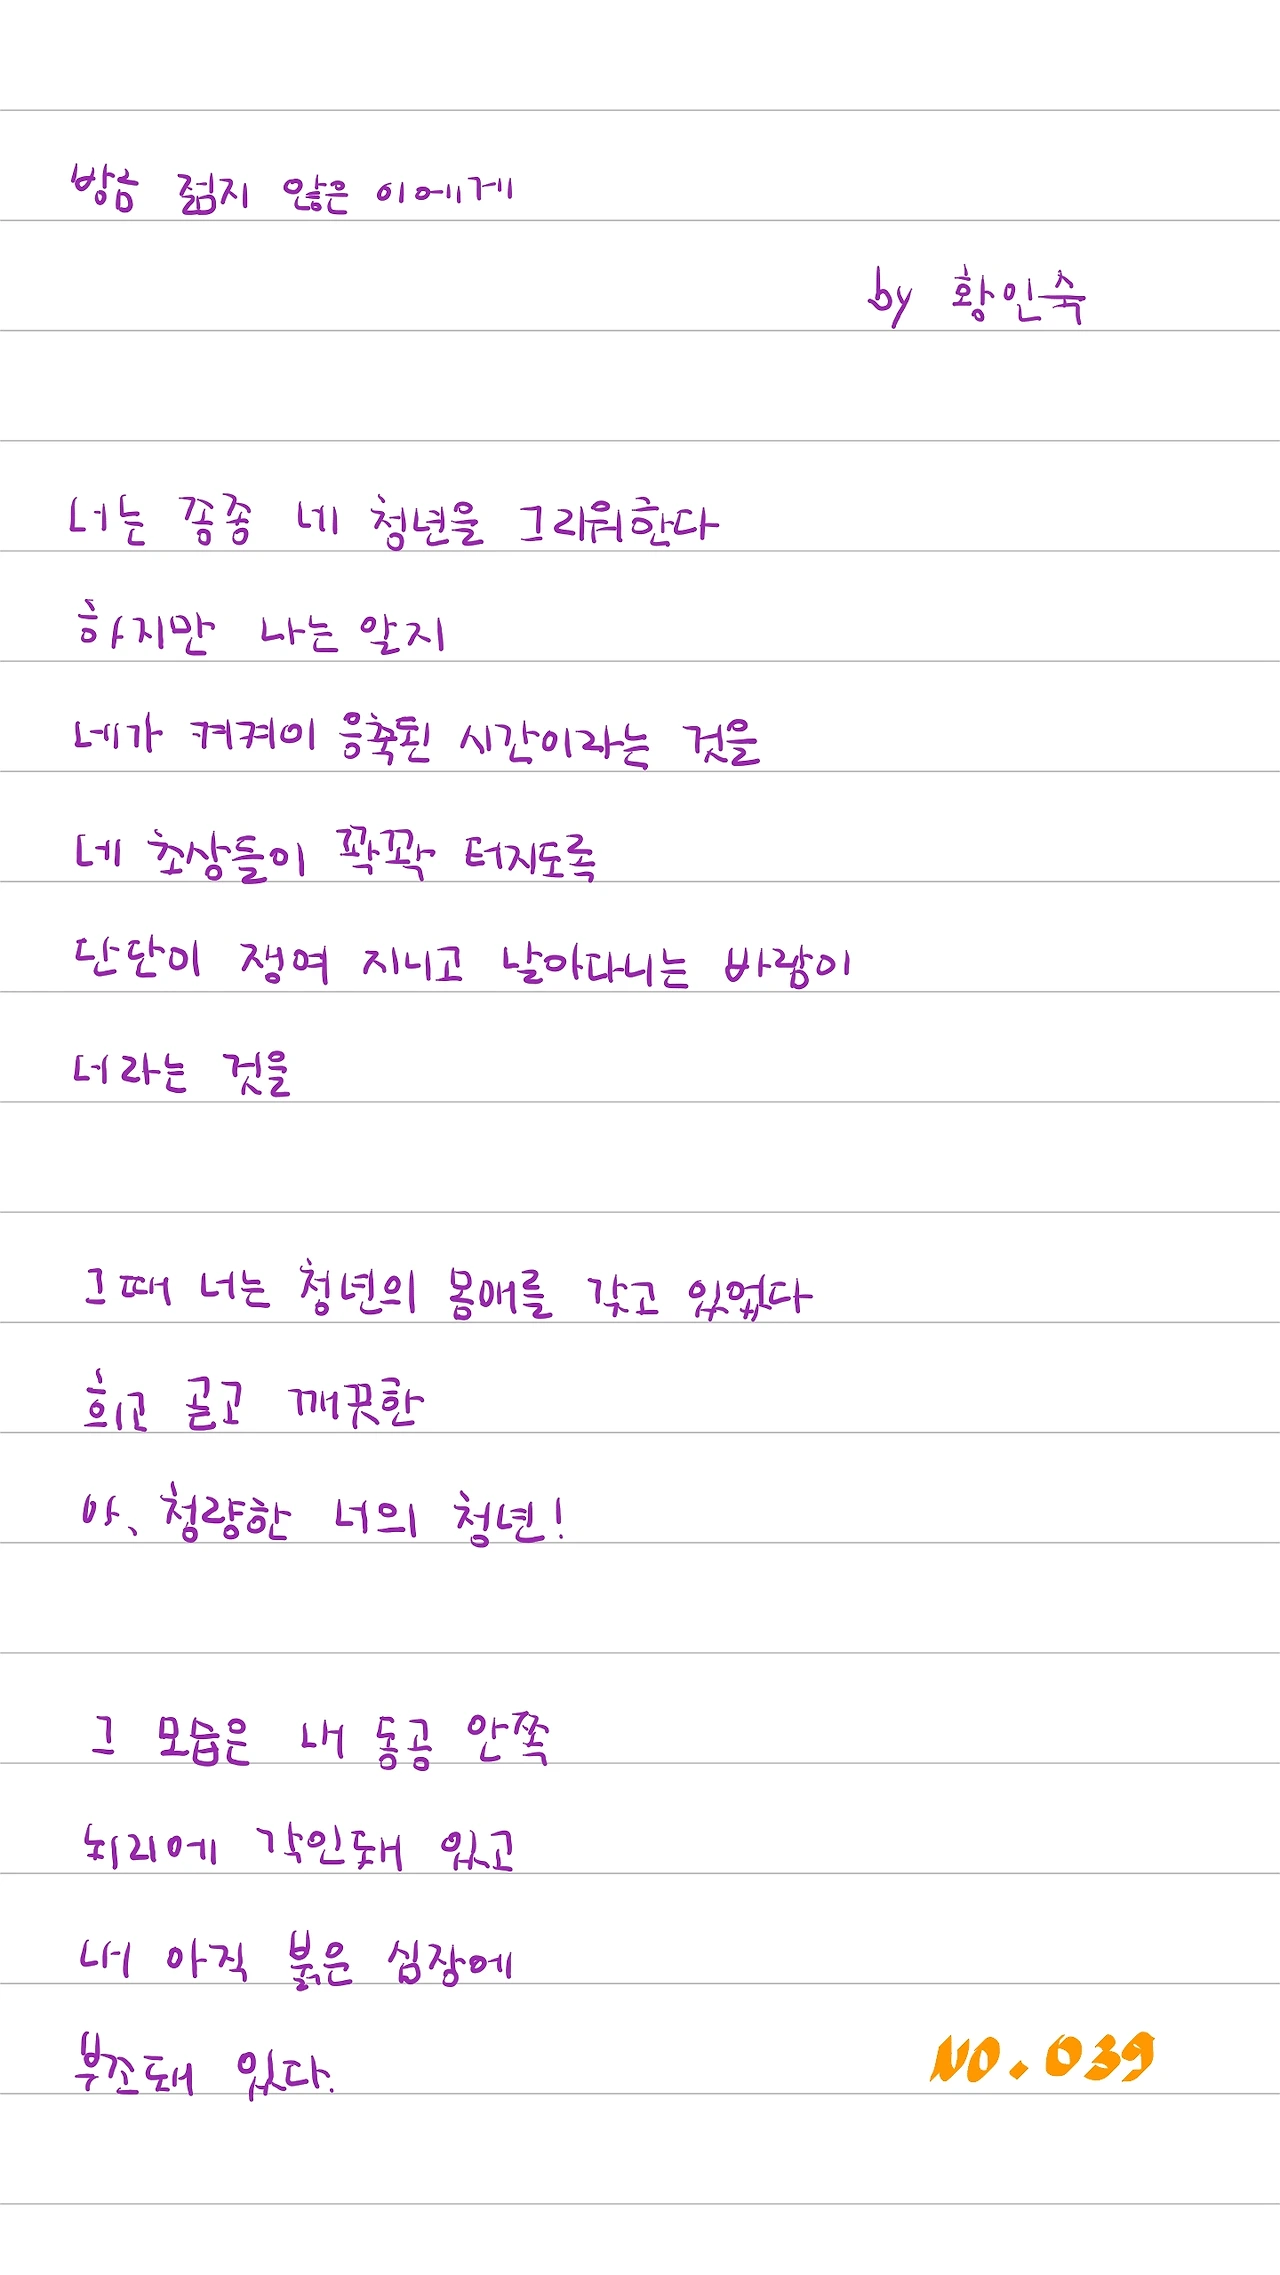 방금 젊지 않은 이에게
by 황인숙
너는 종종 네 청년을 그리워한다
하지만 나는 알지
네가 켜켜이 응축된 시간이라는 것을
네 초상들이 꽉꽉 터지도록
단단이 쟁여 지니고 날아다니는 바람이
너라는 것을
그때 너는 청년의 몸매를 갖고 있었다
희고 곧고 깨끗한
아, 청량한 너의 청년!
그 모습은 내 동공 안쪽
뇌리에 각인돼 있고
내 아직 붉은 심장에
부조돼 있다.
NO.039